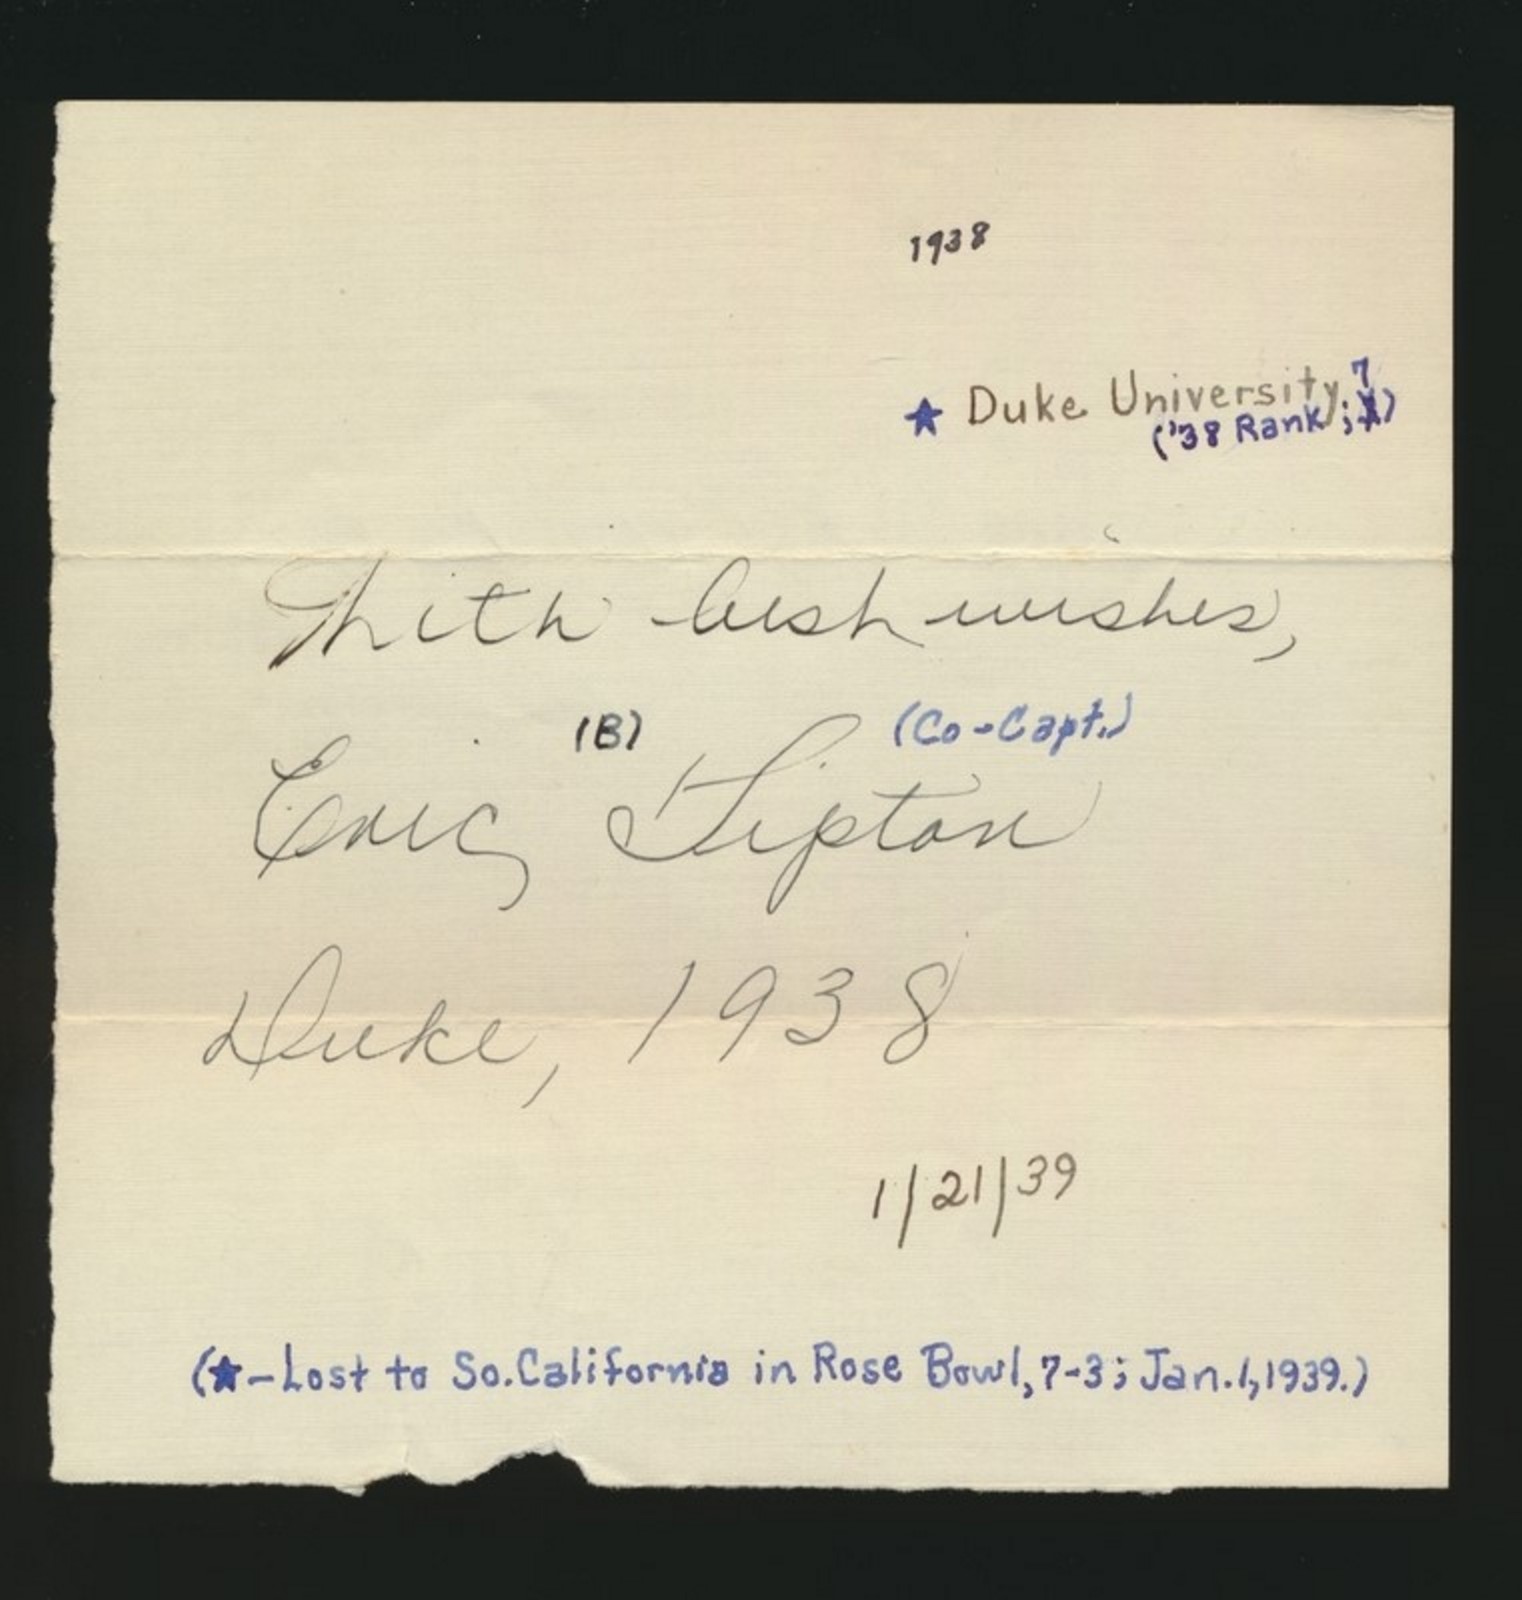 1938
★ Duke University 7
('38 Rank;)
With best wishes,
(B) (Co-Capt.)
Eric Tipton
Duke, 1938
1/21/39
(★-Lost to So.California in Rose Bowl, 7-3; Jan.1,1939.)